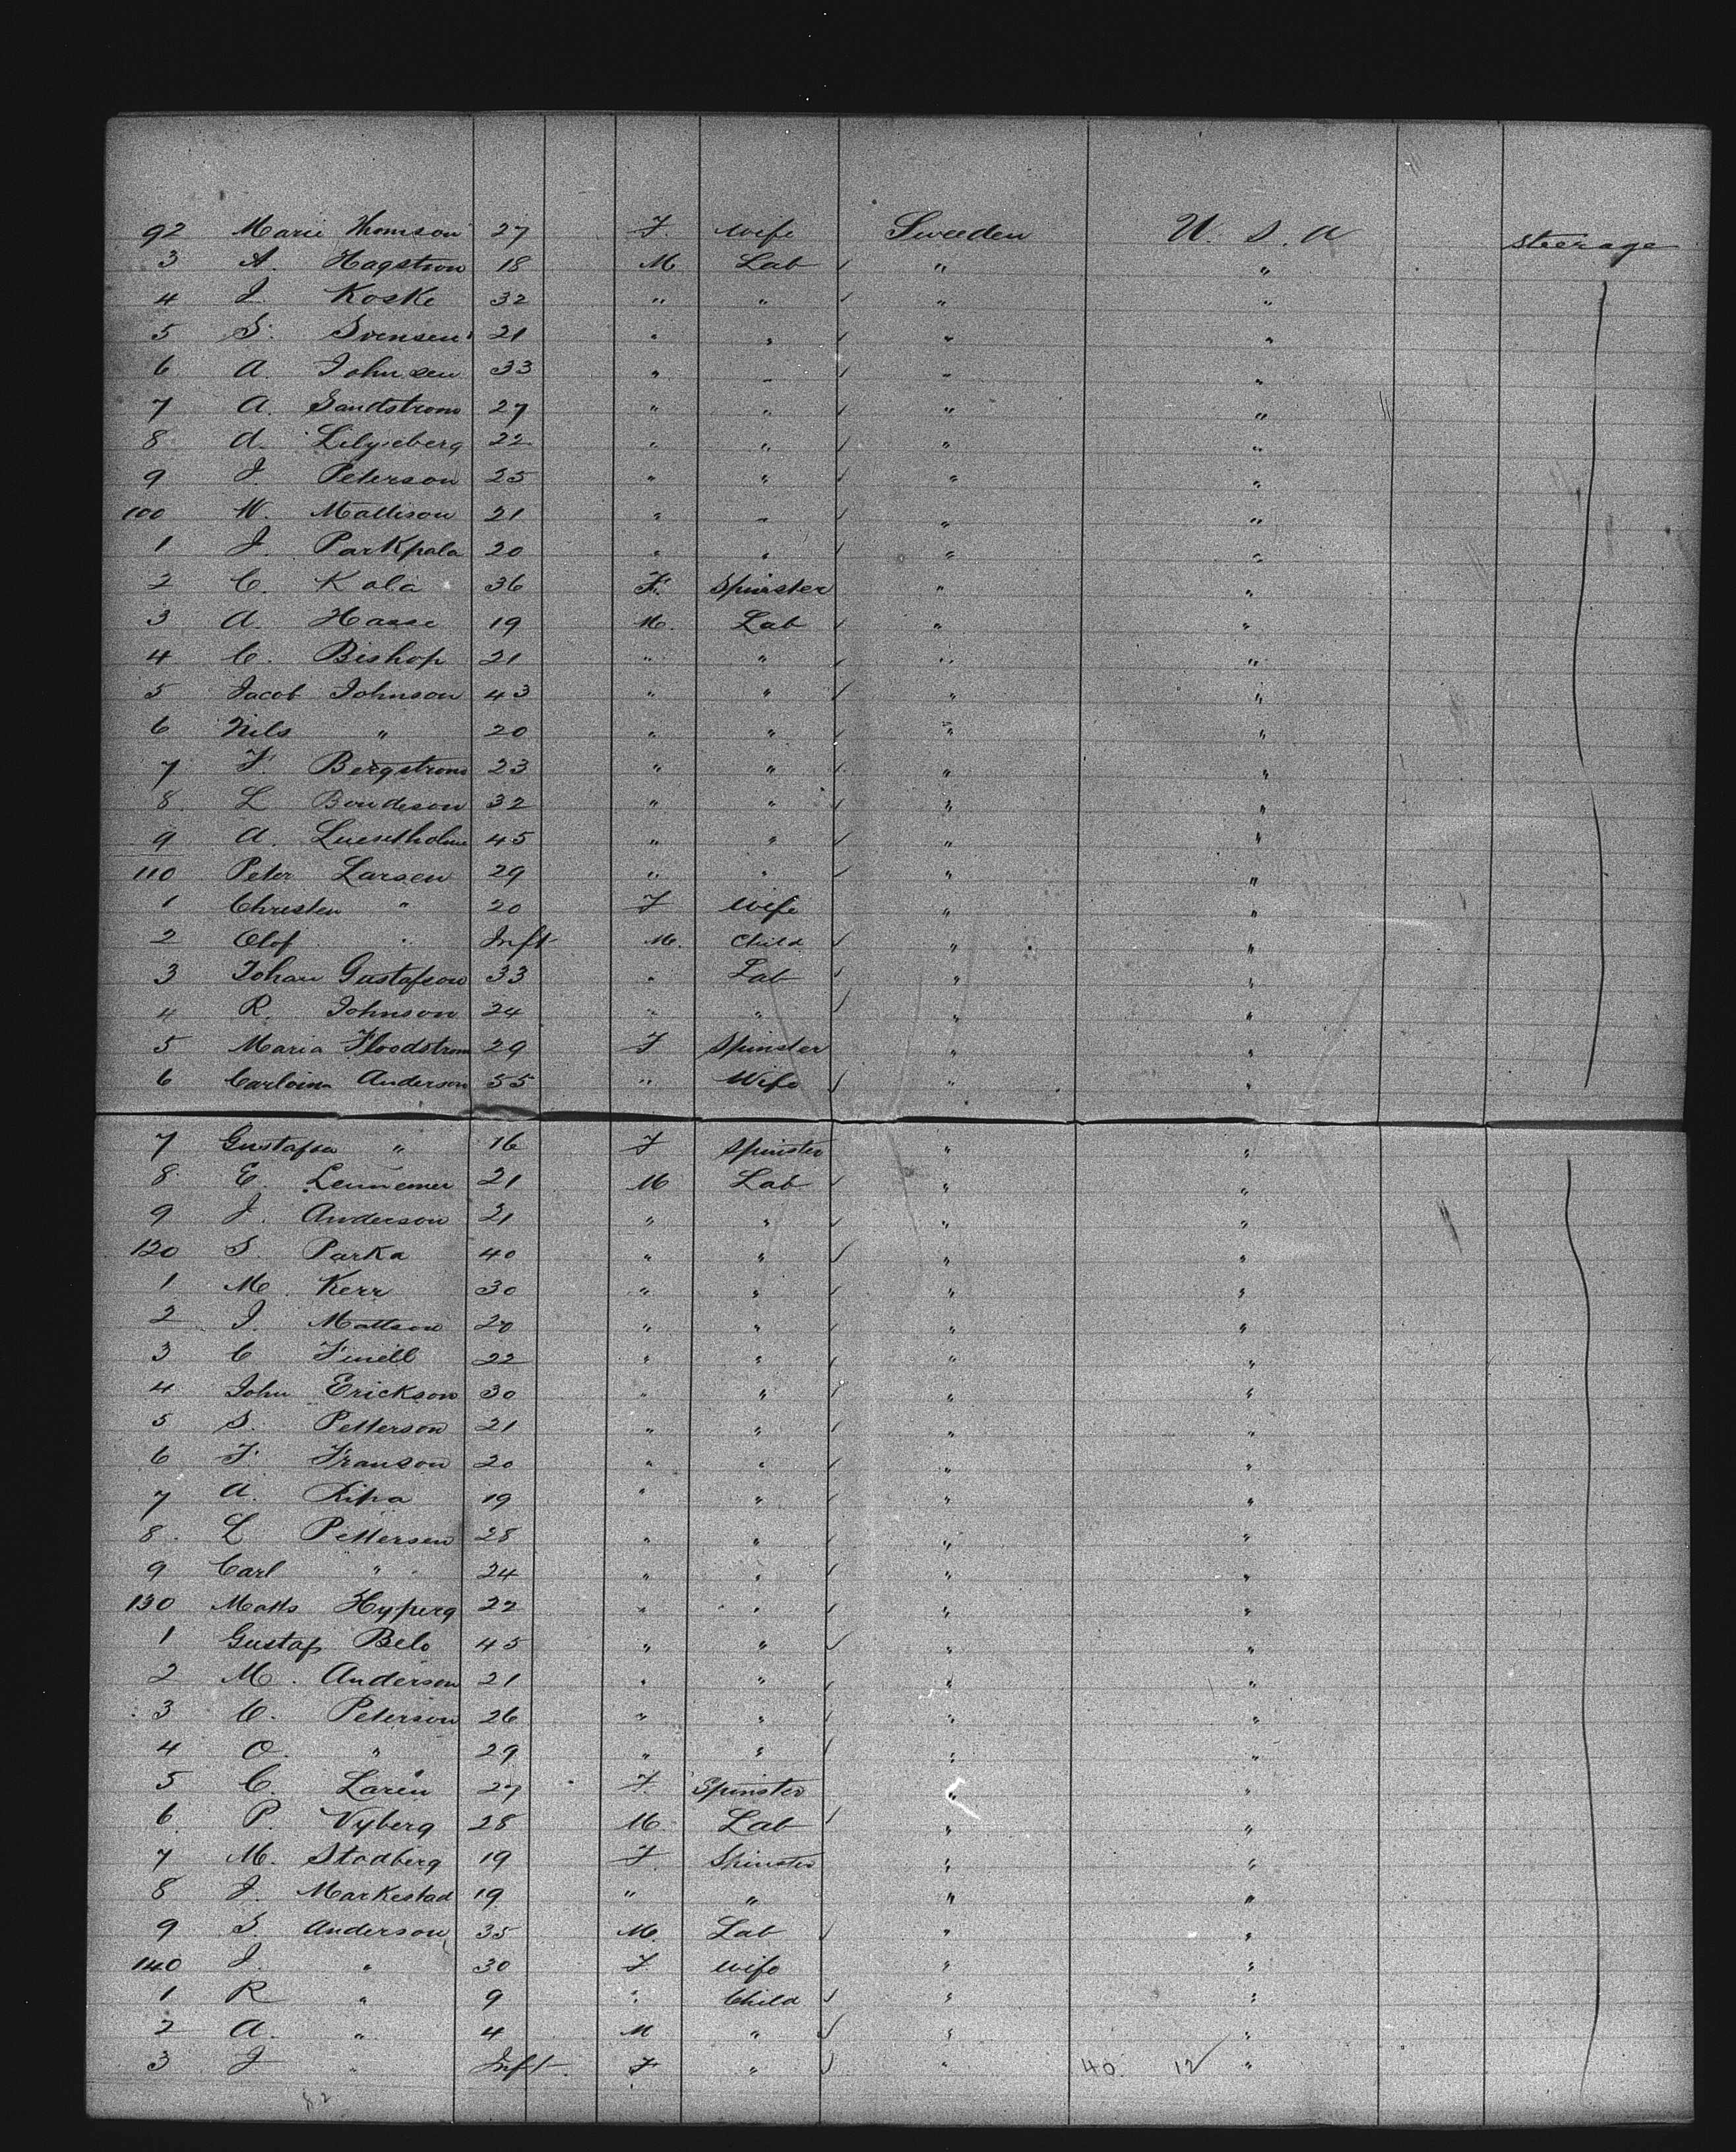 92 Marie Thomson 27 F. Wife Sweeden U. S. A steerage
3 A. Hagstrom 18 M Lab " "
4 J. Koske 32 " " " "
5 S. Svensen 21 " " " "
6 A. Johnsen 33 " " " "
7 A. Sandstrom 27 " " " "
8 A. Lilyieberg 22 " " " "
9 J. Peterson 25 " " " "
100 W. Mattison 21 " " " "
1 J. Parkpala 20 " " " "
2 C. Kala 36 F. Spinster " "
3 A. Hasse 19 M. Lab " "
4 C. Bishop 21 " " " "
5 Jacob Johnson 43 " " " "
6 Nils " 20 " " " "
7 F. Bergstrom 23 " " " "
8 L Bondeson 32 " " " "
9 A. 45 " " " "
110 Peter Larsen 29 " " " "
1 Christen " 20 F Wife " "
2 Olof " Inft M. Child " "
3 Johan Gustafson 33 " Lab " "
4 R. Johnson 24 " " " "
5 Maria Floodstrom 29 F Spinster " "
6 Carloina Anderson 55 " Wife " "
7 Gustafva " 16 F Spinster " "
8 E. 21 M Lab " "
9 J. Anderson 21 " " " "
120 S. Parka 40 " " " "
1 M. Kerr 30 " " " "
2 J. Mattson 20 " " " "
3 C Finell 22 " " " "
4 John Erickson 30 " " " "
5 S. Petterson 21 " " " "
6 F. Franson 20 " " " "
7 A. Ripa 19 " " " "
8 L Pettersen 28 " " " "
9 Carl " 24 " " " "
130 Matts Hyperg 22 " " " "
1 Gustaf Belo 45 " " " "
2 M. Anderson 21 " " " "
3 C. Peterson 26 " " " "
4 O. " 29 " " " "
5 C. Laren 27 F. Spinster " "
6 P. Nyberg 28 M. Lab " "
7 M. Stodberg 19 F. Spinster " "
8 J. Markestad 19 " " " "
9 S. Anderson 35 M. Lab " "
140 J. " 30 F. Wife " "
1 R " 9 " Child " "
2 A. " 4 M " " "
3 J " Inft F " " 40 12 "
82